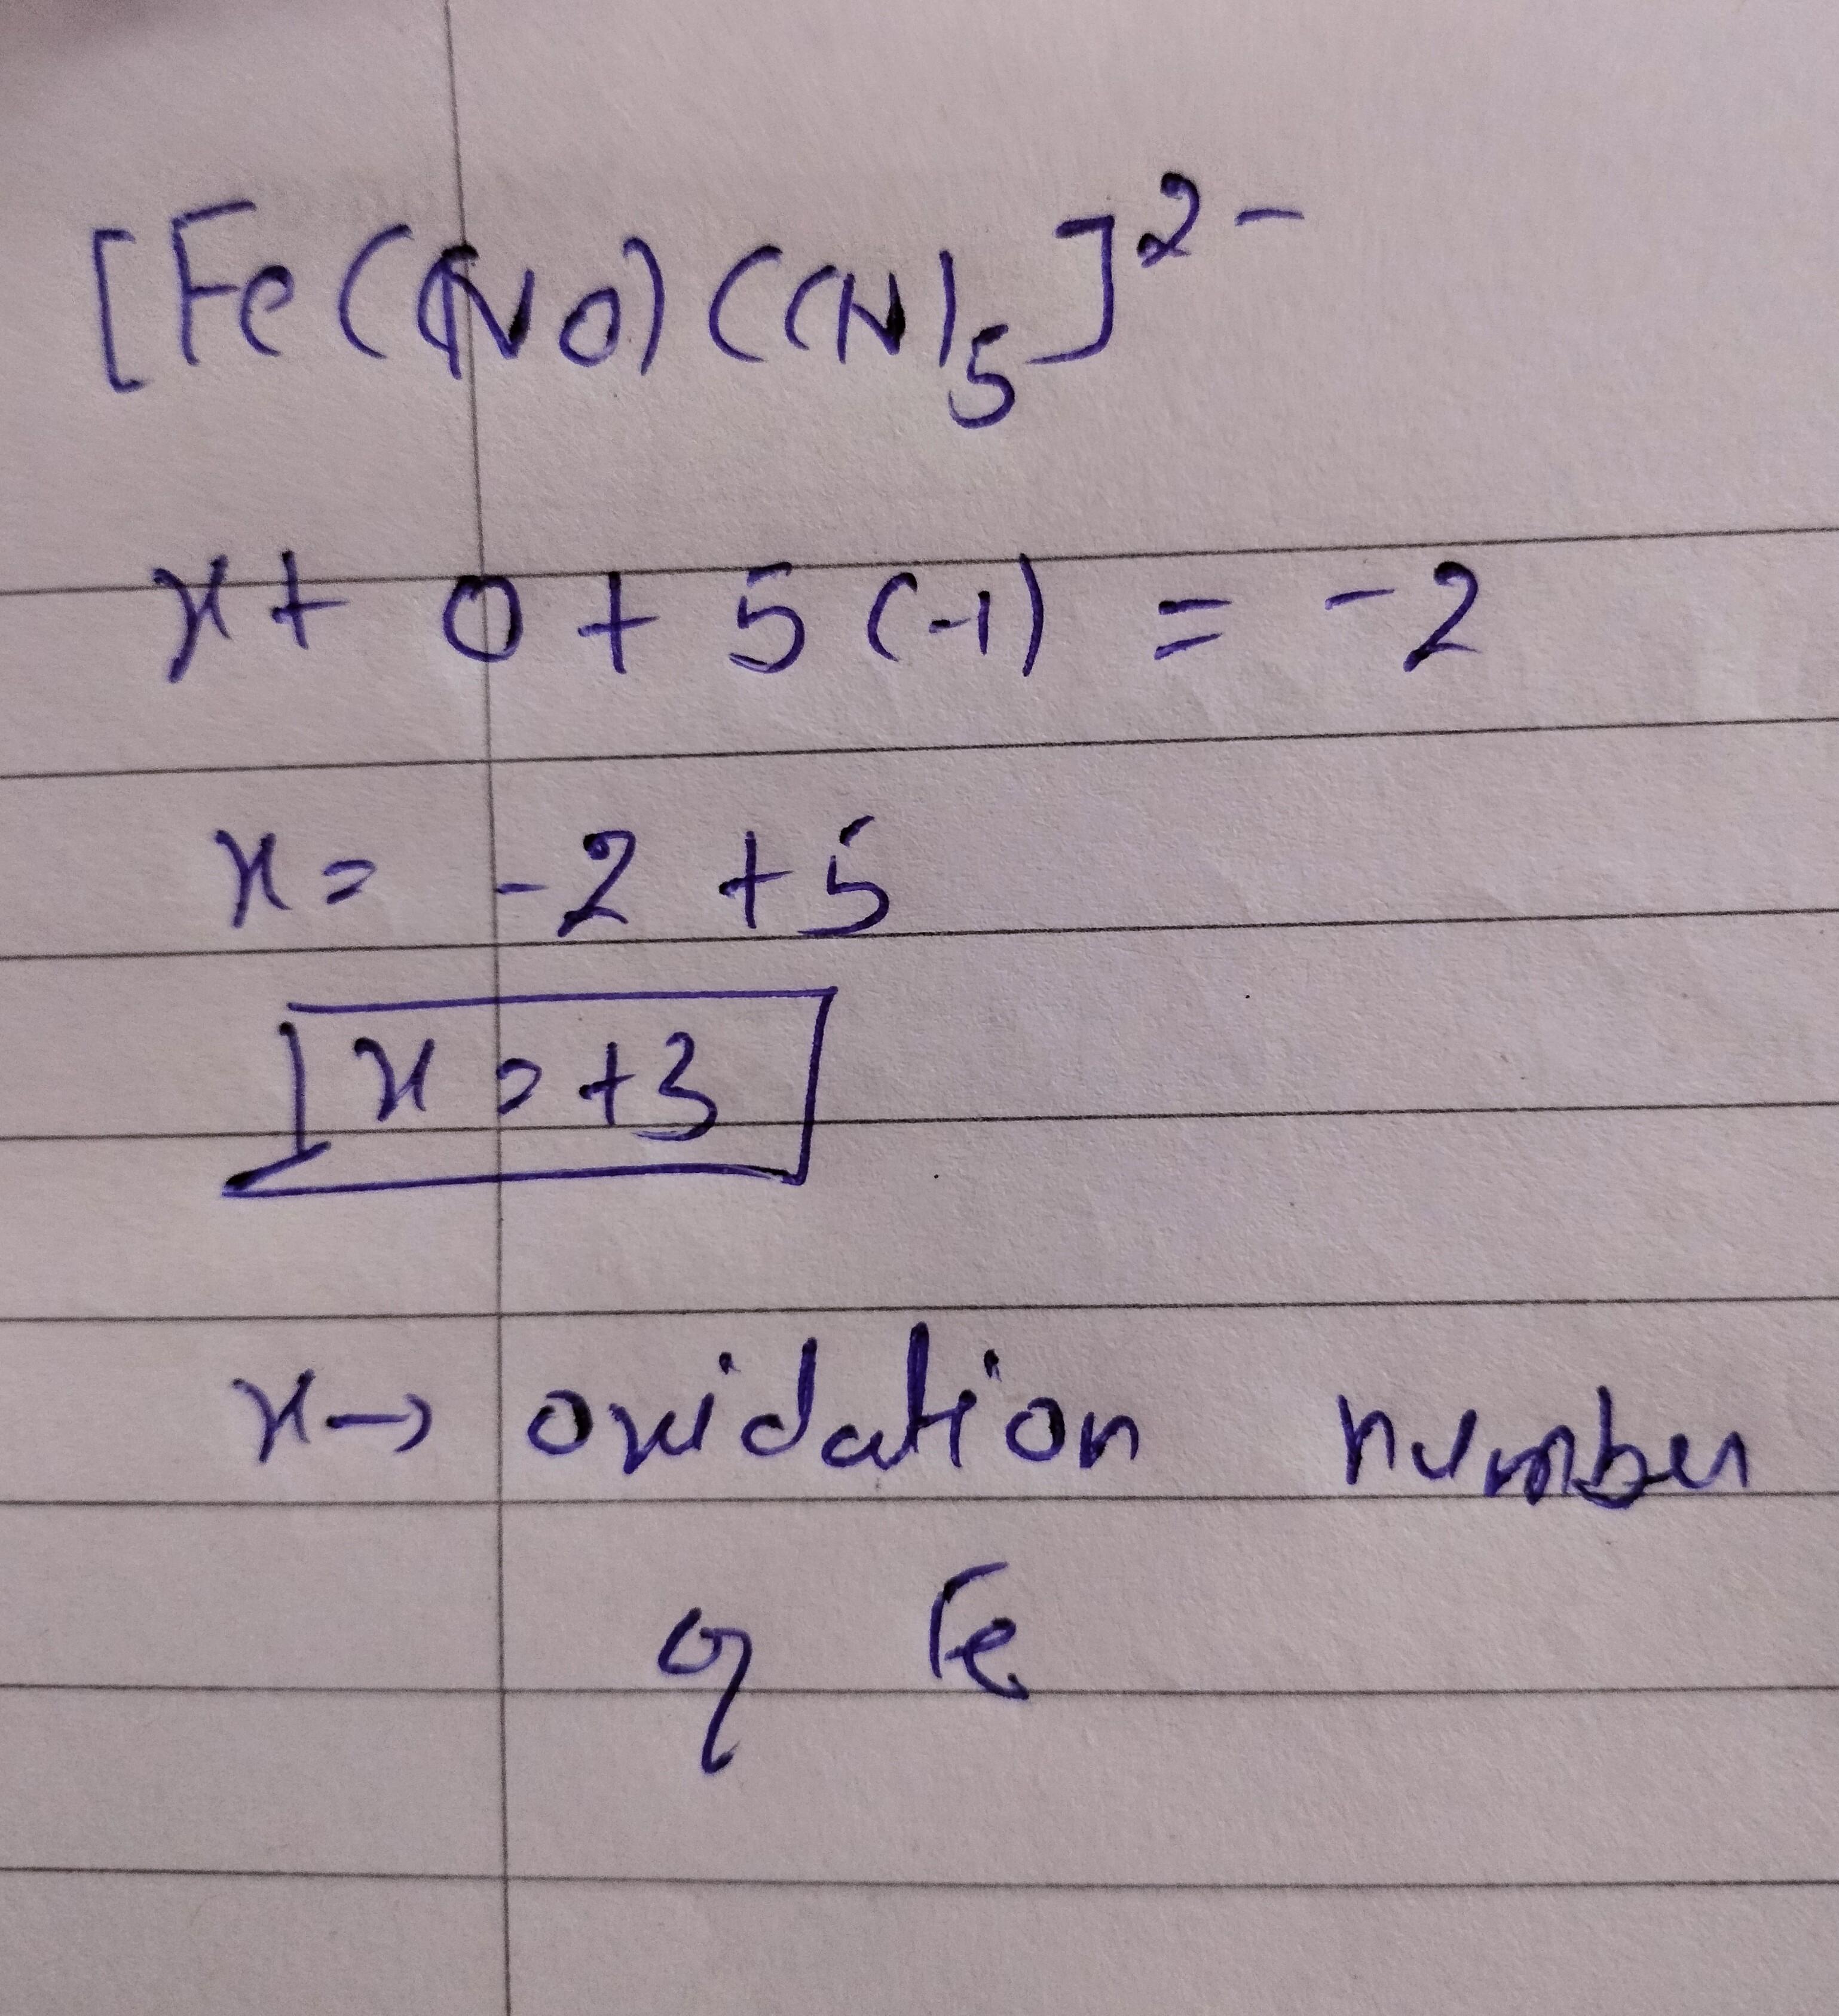 [Fe(NO)(CN)₅]²⁻
x + 0 + 5(-1) = -2
x = -2 + 5
x = +3
x → oxidation number
of Fe